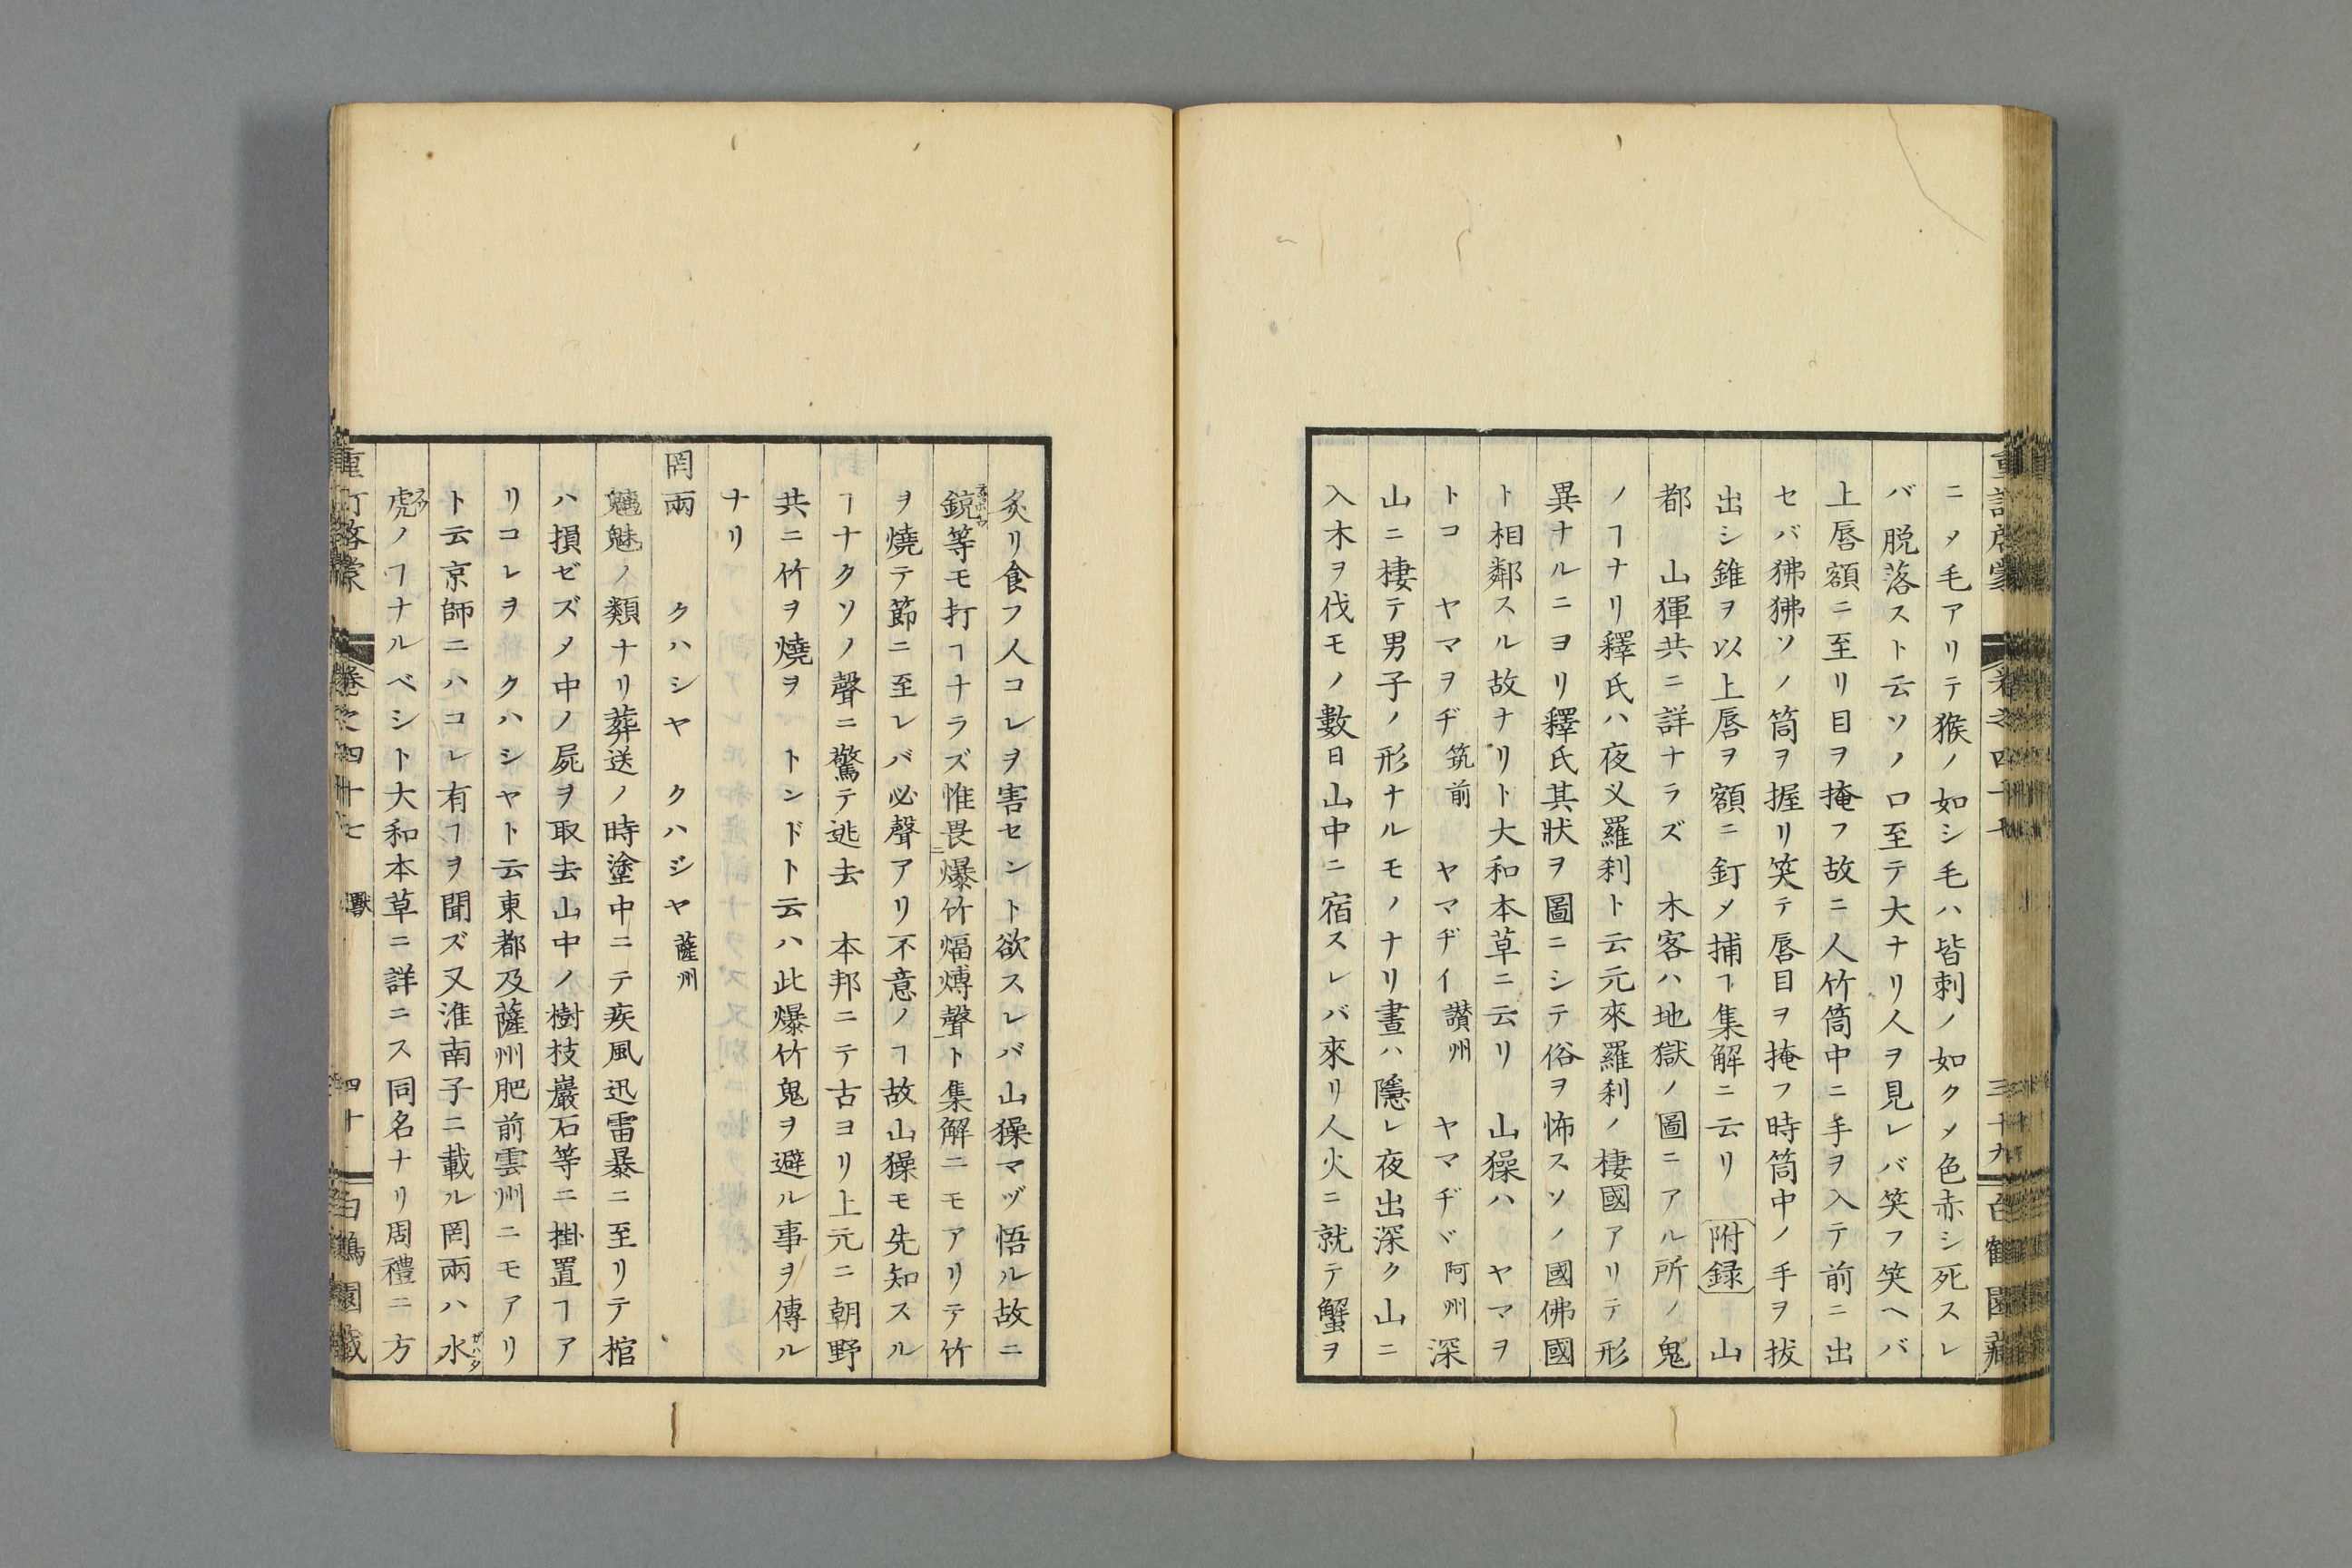 ニメ毛アリテ猴ノ如シ毛ハ皆刺ノ如クメ色赤シ死スレ
バ脱落スト云ソノ口至テ大ナリ人ヲ見レバ笑フ笑ヘバ
上唇額ニ至リ目ヲ掩フ故ニ人竹筒中ニ手ヲ入テ前ニ出
セバ狒狒ソノ筒ヲ握リ笑テ唇目ヲ掩フ時筒中ノ手ヲ拔
出シ錐ヲ以上唇ヲ額ニ釘メ捕ヿ集解ニ云リ 附録 山
都 山𤟤共ニ詳ナラズ 木客ハ地獄ノ圖ニアル所ノ鬼
ノヿナリ釋氏ハ夜叉羅刹ト云元來羅刹ノ棲國アリテ形
異ナルニヨリ釋氏其狀ヲ圖ニシテ俗ヲ怖スソノ國佛國
ト相鄰スル故ナリト大和本草ニ云リ 山𤢖ハ ヤマヲ
トコ ヤマヲヂ筑前 ヤマヂイ讃州 ヤマヂヾ阿州 深
山ニ棲テ男子ノ形ナルモノナリ晝ハ隱レ夜出深ク山ニ
入木ヲ伐モノ數日山中ニ宿スレバ來リ人火ニ就テ蟹ヲ
炙リ食フ人コレヲ害セント欲スレバ山𤢖マヅ悟ル故ニ
銃等モ打ヿナラズ惟畏爆竹煏煿聲ト集解ニモアリテ竹
ヲ燒テ節ニ至レバ必聲アリ不意ノヿ故山𤢖モ先知スル
ヿナクソノ聲ニ驚テ逃去 本邦ニテ古ヨリ上元ニ朝野
共ニ竹ヲ燒ヲ トンドト云ハ此爆竹鬼ヲ避ル事ヲ傳ル
ナリ
罔兩 クハシヤ クハジヤ薩州
魑魅ノ類ナリ葬送ノ時塗中ニテ疾風迅雷暴ニ至リテ棺
ハ損ゼズメ中ノ屍ヲ取去山中ノ樹枝巖石等ニ掛置ヿア
リコレヲ クハシヤト云東都及薩州肥前雲州ニモアリ
ト云京師ニハコレ有ヿヲ聞ズ又淮南子ニ載ル罔兩ハ水
虎ノヿナルベシト大和本草ニ詳ニス同名ナリ周禮ニ方
卷之四十七 獸 四十